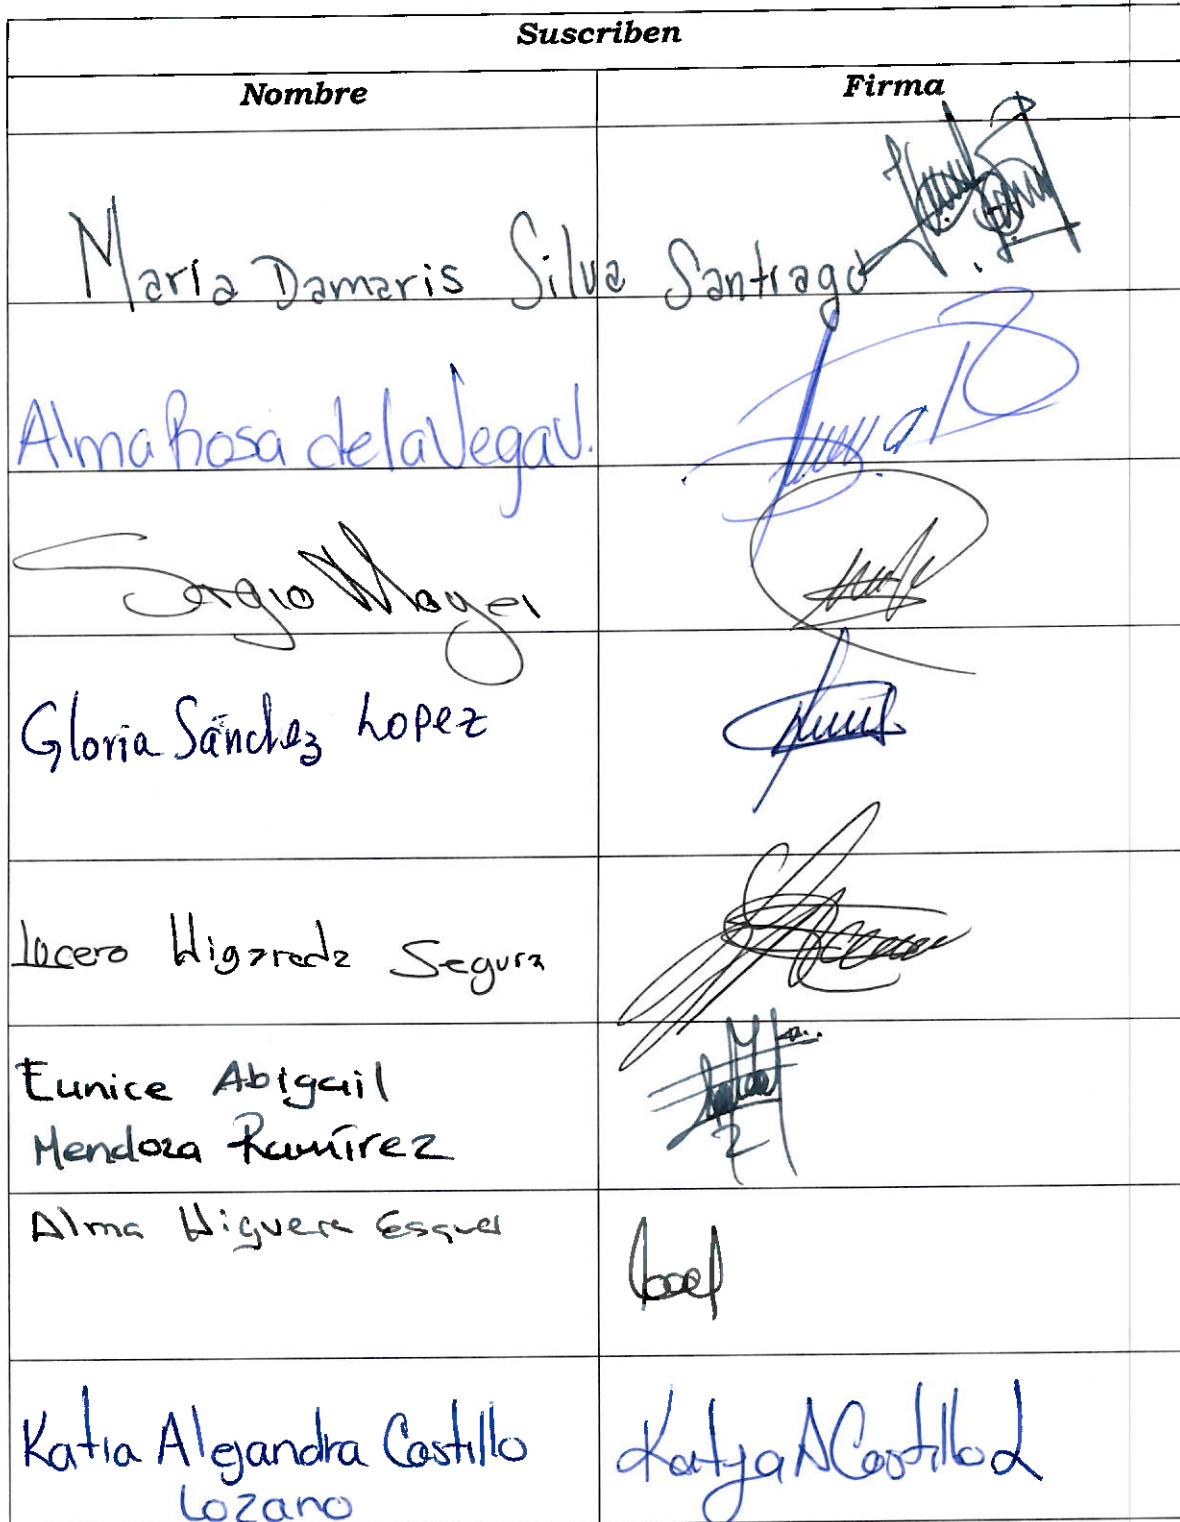 Suscriben
Nombre Firma
María Damaris Silva Santiago
Alma Rosa de la Vega V.
Sergio Mayer
Gloria Sánchez Lopez
Lucero Higareda Segura
Eunice Abigail
Mendoza Ramírez
Alma Higuera Esquer
Katia Alejandra Castillo Katya A Castillo L
Lozano